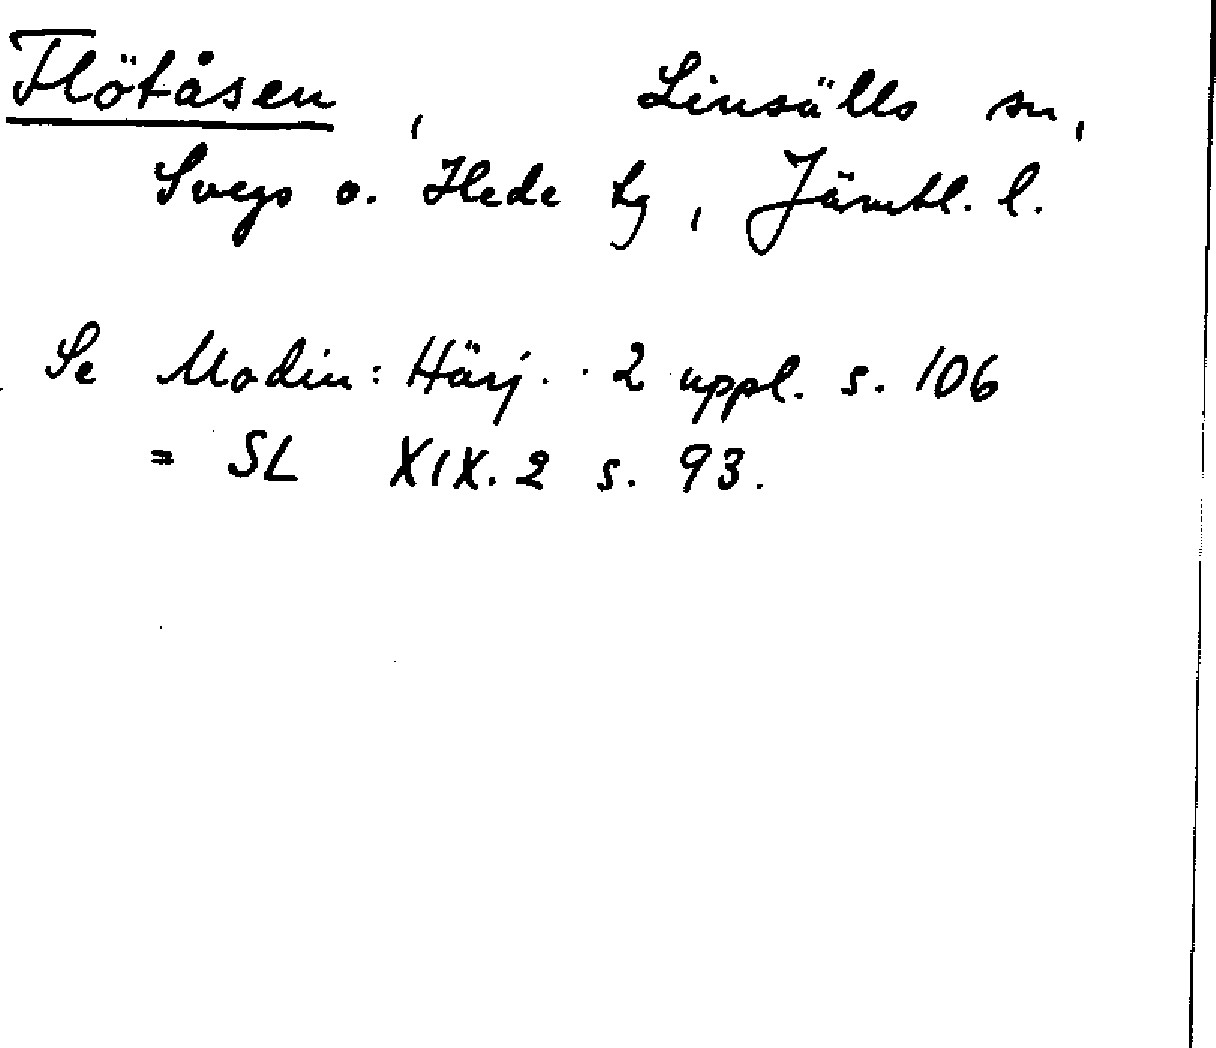 Flötåsen, Linsälls sn,
Svegs o. Hede tg, Jämtl. l.
Se Modin: Härj. 2 uppl. s. 106
= SL XIX. 2 s. 93.